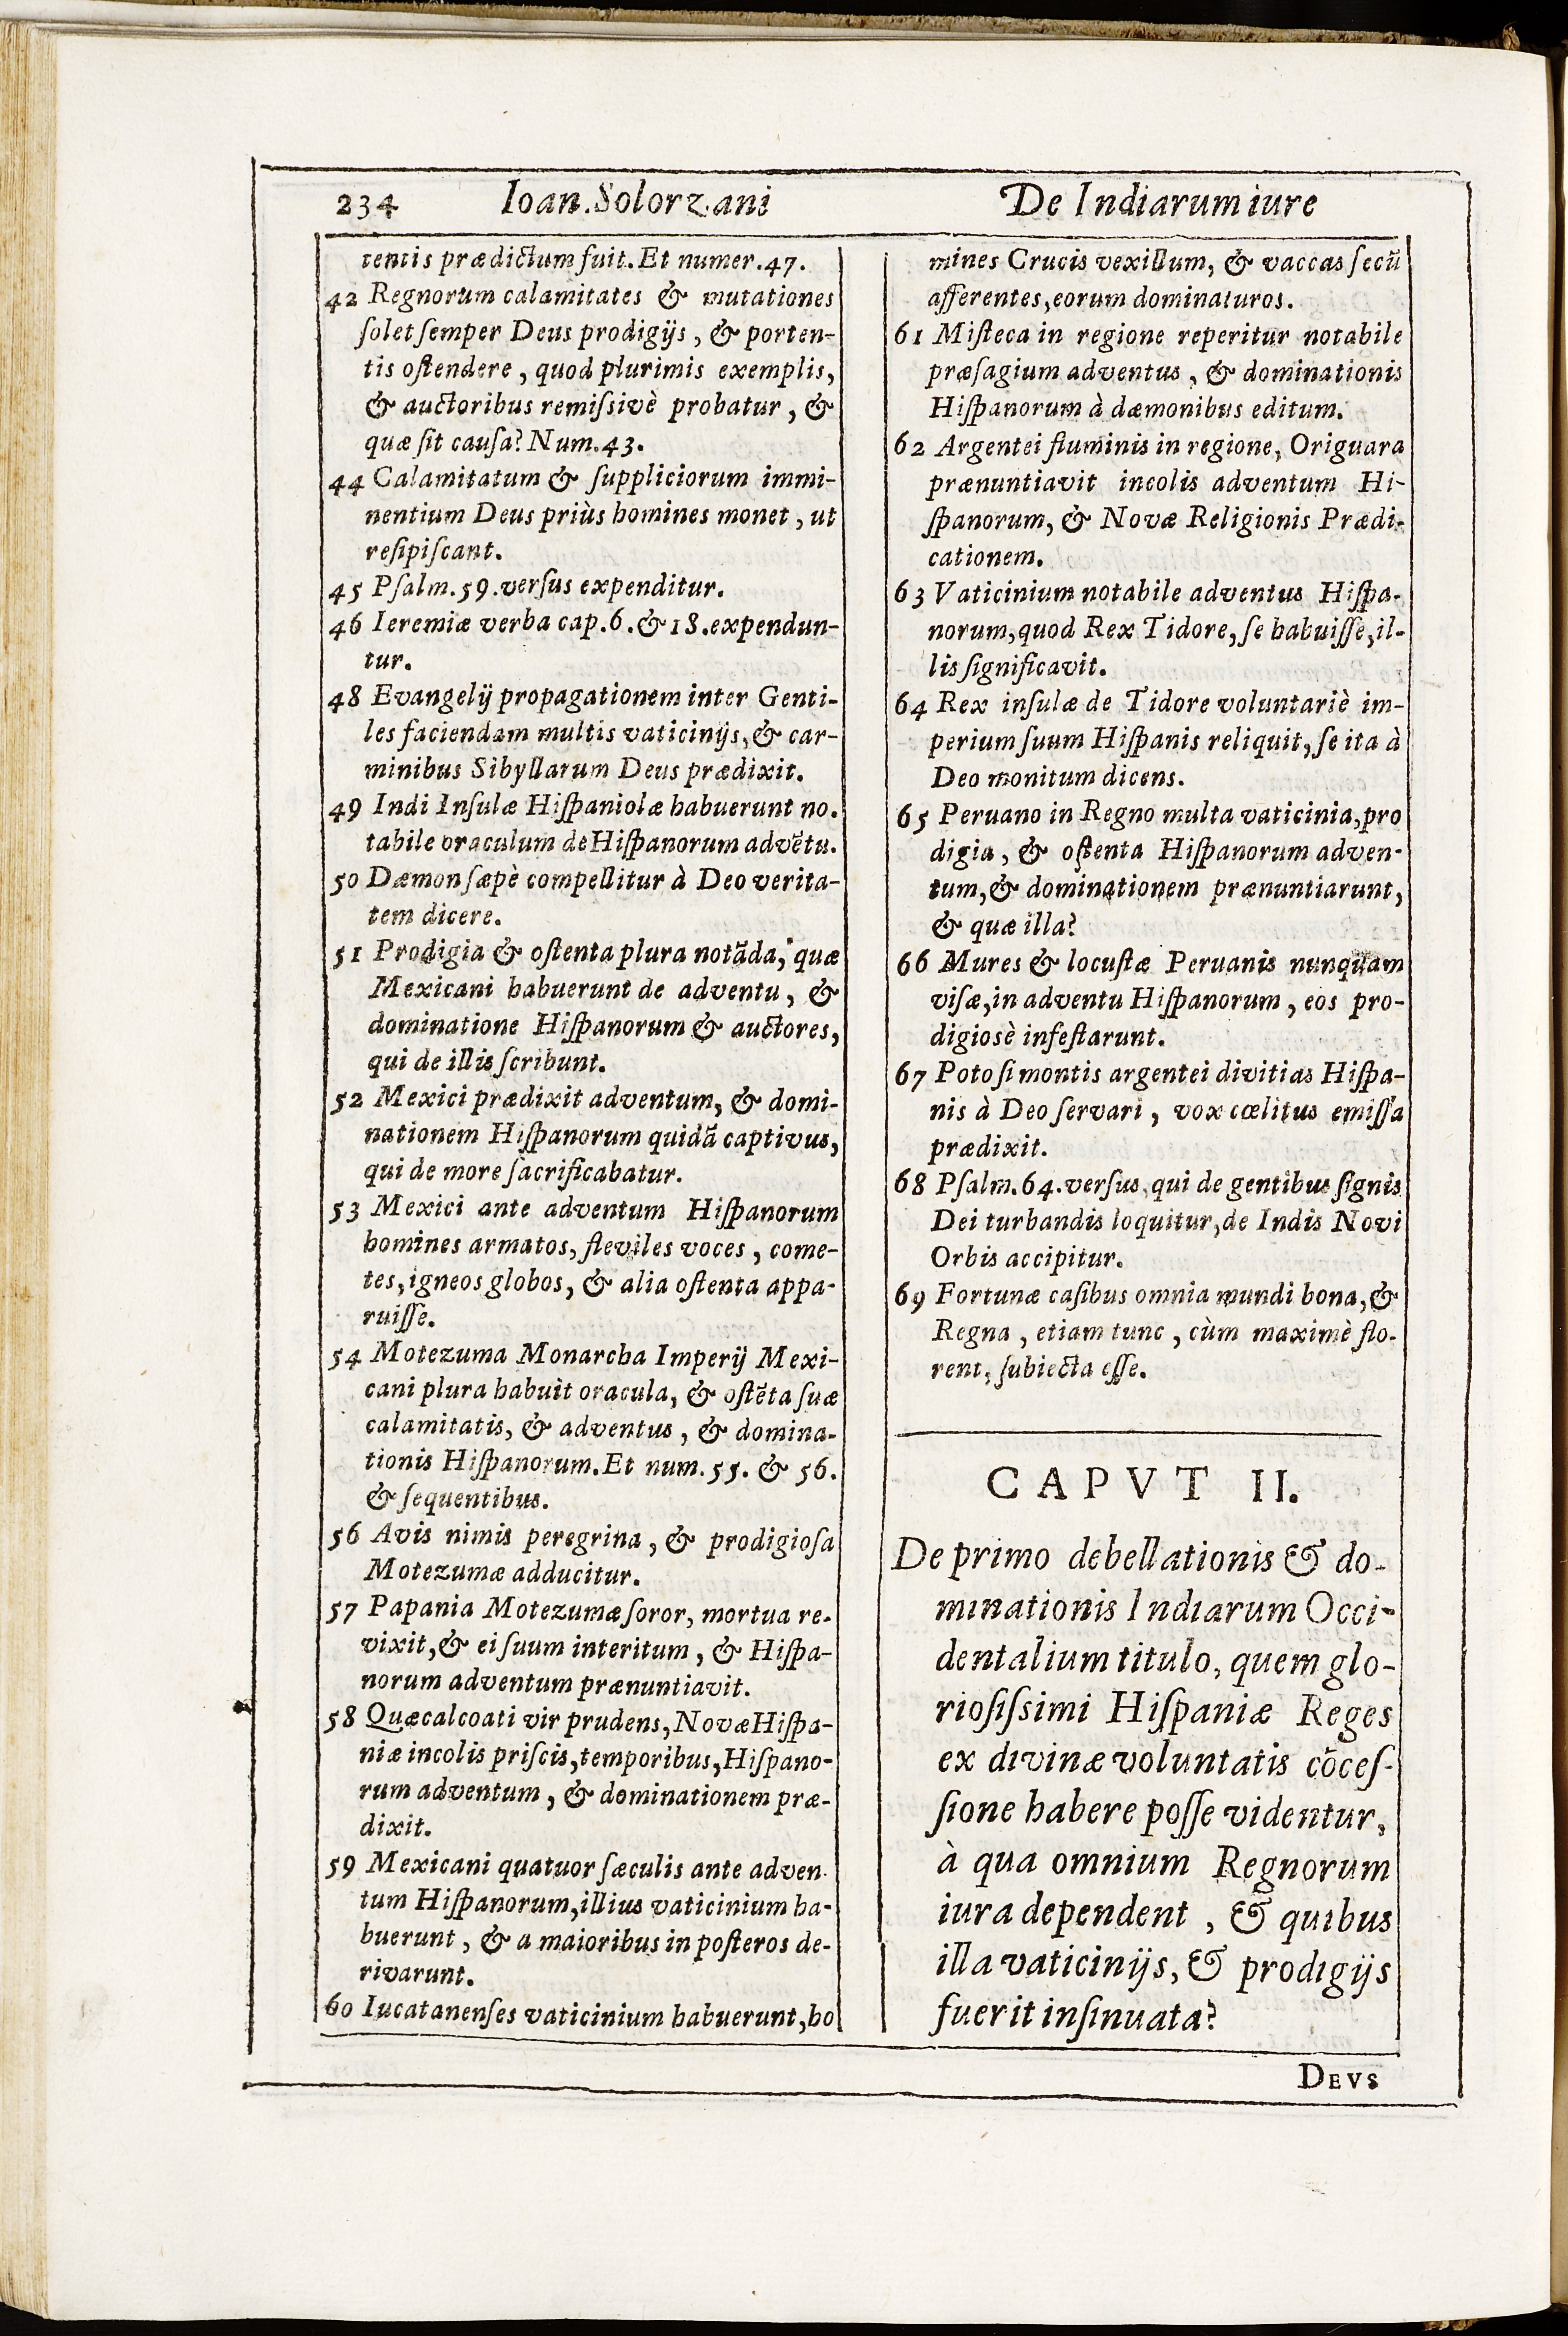 234 Ioan.Solorzani De Indiarum iure
tentis prædictum fuit. Et numer.47.
42 Regnorum calamitates & mutationes
ſolet ſemper Deus prodigijs, & porten-
tis oſtendere, quod plurimis exemplis,
& auctoribus remiſsivè probatur, &
quæ ſit cauſa? Num.43.
44 Calamitatum & ſuppliciorum immi-
nentium Deus priùs homines monet, ut
reſipiſcant.
45 Pſalm.59.verſus expenditur.
46 Ieremiæ verba cap.6.& 18.expendun-
tur.
48 Evangelij propagationem inter Genti-
les faciendam multis vaticinijs, & car-
minibus Sibyllarum Deus prædixit.
49 Indi Inſulæ Hiſpaniolæ habuerunt no.
tabile oraculum de Hiſpanorum advẽtu.
50 Dæmon ſæpè compellitur à Deo verita-
tem dicere.
51 Prodigia & oſtenta plura notãda, quæ
Mexicani habuerunt de adventu, &
dominatione Hiſpanorum & auctores,
qui de illis ſcribunt.
52 Mexici prædixit adventum, & domi-
nationem Hiſpanorum quidã captivus,
qui de more ſacrificabatur.
53 Mexici ante adventum Hiſpanorum
homines armatos, fleviles voces, come-
tes, igneos globos, & alia oſtenta appa-
ruiſſe.
54 Motezuma Monarcha Imperij Mexi-
cani plura habuit oracula, & oſtẽta ſuæ
calamitatis, & adventus, & domina-
tionis Hiſpanorum. Et num.55. & 56.
& ſequentibus.
56 Avis nimis peregrina, & prodigioſa
Motezumæ adducitur.
57 Papania Motezumæ ſoror, mortua re-
vixit, & ei ſuum interitum, & Hiſpa-
norum adventum prænuntiavit.
58 Quæcalcoati vir prudens, Novæ Hiſpa-
niæ incolis priſcis, temporibus, Hiſpano-
rum adventum, & dominationem præ-
dixit.
59 Mexicani quatuor ſæculis ante adven-
tum Hiſpanorum, illius vaticinium ha-
buerunt, & a maioribus in poſteros de-
rivarunt.
60 Iucatanenſes vaticinium habuerunt, ho
mines Crucis vexillum, & vaccas ſecũ
afferentes, eorum dominaturos.
61 Miſteca in regione reperitur notabile
præſagium adventus, & dominationis
Hiſpanorum à dæmonibus editum.
62 Argentei fluminis in regione, Origuara
prænuntiavit incolis adventum Hi-
ſpanorum, & Novæ Religionis Prædi-
cationem.
63 Vaticinium notabile adventus Hiſpa-
norum, quod Rex Tidore, ſe habuiſſe, il-
lis ſignificavit.
64 Rex inſulæ de Tidore voluntariè im-
perium ſuum Hiſpanis reliquit, ſe ita à
Deo monitum dicens.
65 Peruano in Regno multa vaticinia, pro
digia, & oſtenta Hiſpanorum adven-
tum, & dominationem prænuntiarunt,
& quæ illa?
66 Mures & locuſtæ Peruanis nunquam
viſæ, in adventu Hiſpanorum, eos pro-
digiosè infeſtarunt.
67 Potoſi montis argentei divitias Hiſpa-
nis à Deo ſervari, vox cœlitus emiſſa
prædixit.
68 Pſalm.64.verſus, qui de gentibus ſignis
Dei turbandis loquitur, de Indis Novi
Orbis accipitur.
69 Fortunæ caſibus omnia mundi bona, &
Regna, etiam tunc, cùm maximè flo-
rent, ſubiecta eſſe.
CAPVT II.
De primo debellationis & do-
minationis Indiarum Occi-
dentalium titulo, quem glo-
rioſiſsimi Hiſpaniæ Reges
ex divinæ voluntatis cõceſ-
ſione habere poſſe videntur,
à qua omnium Regnorum
iura dependent, & quibus
illa vaticinijs, & prodigijs
fuerit inſinuata?
DEVS